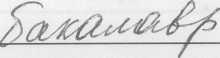 бакалавр